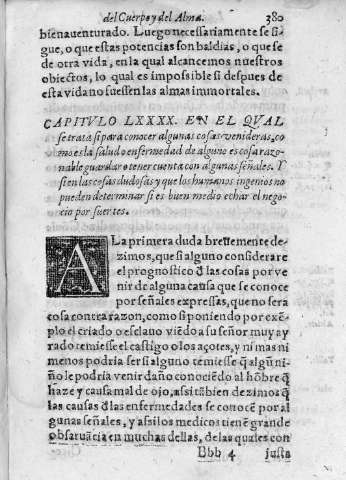 del Cuerpo y del Alma. 380
bienauenturado. Luego necessariamente se si
gue, o que estas potencias son baldias, o que se
de otra vida, en la qual alcancemos nuestros
obiectos, lo qual es impossible si despues de
esta vida no fuessen las almas immortales.
CAPITVLO LXXXX. EN EL QVAL
se trata si para conocer algunas cosas venideras, co
mo es la salud o enfermedad de alguno es cosa razo-
nable guardar o tener cuenta con algunas señales. Y
si en las cosas dudosas y que los humanos ingenios no
pueden determinar si es buen medio echar el nego-
cio por suertes.
A La primera duda breuemente de-
zimos, que si alguno considerare
el prognostico đ las cosas por ve
nir de alguna causa que se conoce
por señales expressas, que no sera
cosa contra razon, como si poniendo por exē-
plo el criado o esclauo viēdo a su señor muy ay
rado temiesse el castigo o los açotes, y ni mas ni
menos podria ser si alguno temiesse q̃ algũ ni-
ño le podria venir daño conociēdo al hōbre q̃
haze y causa mal de ojo, assi tābien dezimos q̃
las causas đ las enfermedades se conocē por al
gunas señales, y assi los medicos tienē grande
obseruācia en muchas dellas, de las quales con
Bbb 4 justa